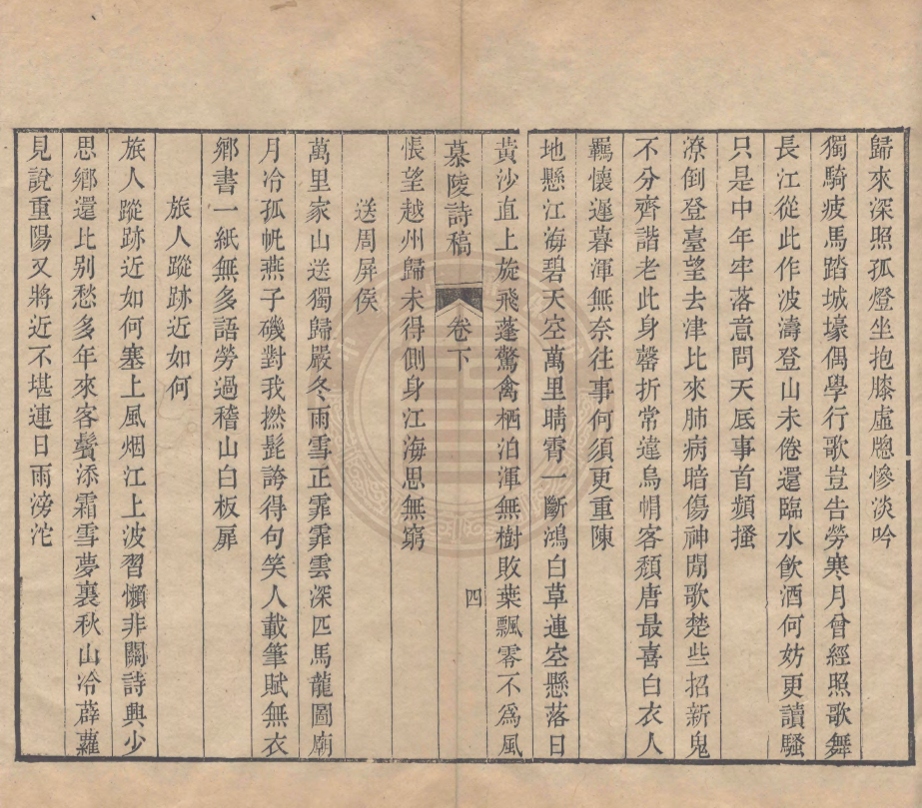 歸來深照孤燈坐抱膝虛牕慘淡吟
獨騎疲馬踏城壕偶學行歌豈告勞寒月曾經照歌舞
長江從此作波濤登山未倦還臨水飲酒何妨更讀騷
只是中年牢落意問天底事首頻搔
潦倒登臺望去津比來肺病暗傷神閒歌楚些招新鬼
不分齊諧老此身罄折常違烏帽客頹唐最喜白衣人
羈懷遲暮渾無奈往事何須更重陳
地懸江海碧天空萬里晴霄一斷鴻白草連空懸落日
黃沙直上旋飛蓬驚禽栖泊渾無樹敗葉飄零不爲風
慕陵詩稿 卷下 四
悵望越州歸未得側身江海思無窮
送周屏侯
萬里家山送獨歸嚴冬雨雪正霏霏雲深匹馬龍圖廟
月冷孤帆燕子磯對我撚髭誇得句笑人載筆賦無衣
鄉書一紙無多語勞過稽山白板扉
旅人蹤跡近如何
旅人蹤跡近如何塞上風烟江上波習懶非關詩興少
思鄉還比别愁多年來客鬢添霜雪夢裏秋山冷薜蘿
見說重陽又將近不堪連日雨滂沱